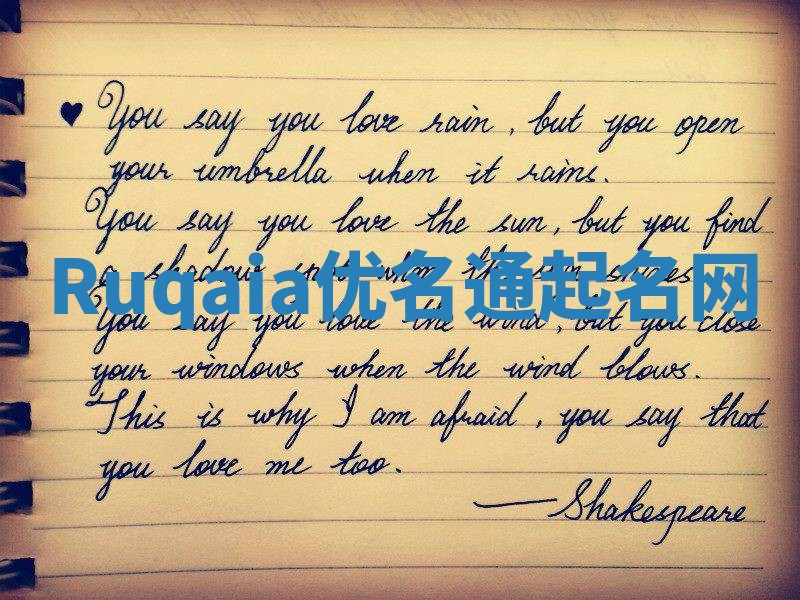 ♥ You say you love rain, but you open
your umbrella when it rains.
You say you love the sun, but you find
a shadow spot when the sun shines.
Ruqaia优名通起名网
You say you love the wind, but you close
your windows when the wind blows.
This is why I am afraid, you say that
you love me too.
—Shakespeare